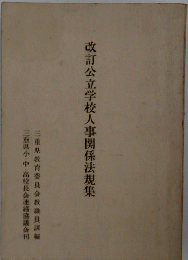 改訂公立学校人事関係法規集
三重県教育委員会教職員課編
三重県小中高校長会連絡協議会刊